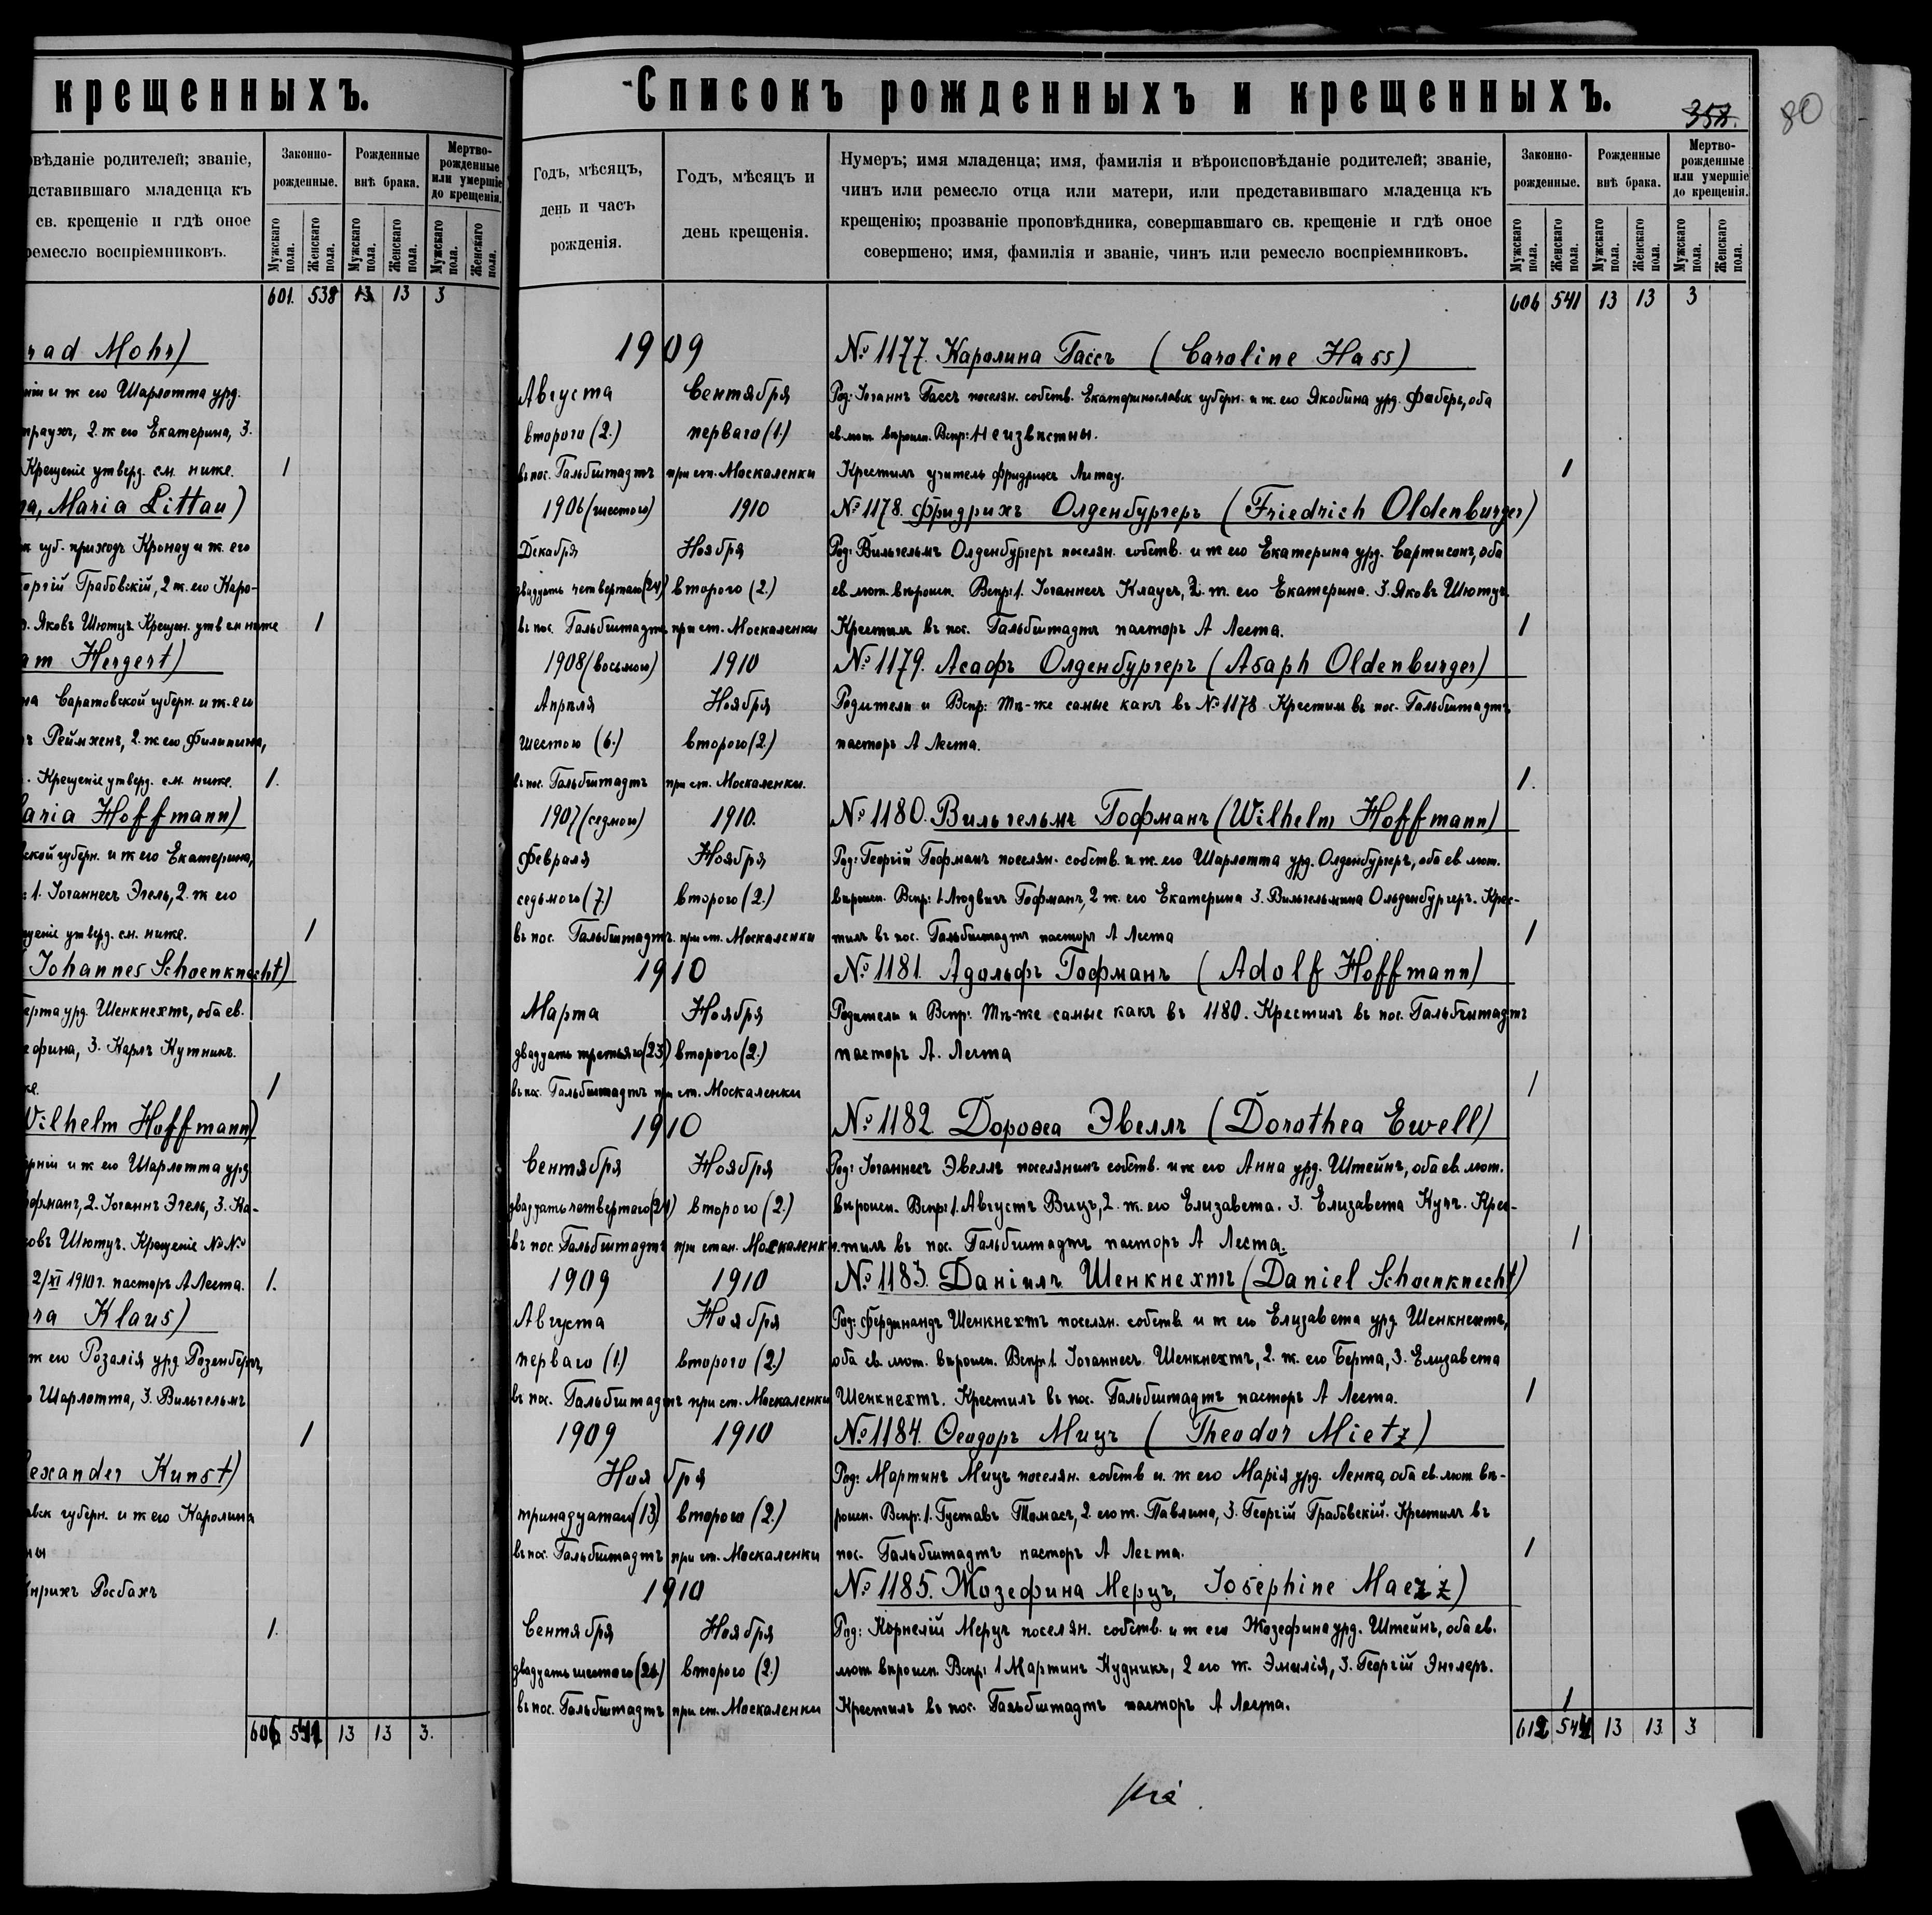 крещенныхъ.
овѣданіе родителей; званіе,
дставившаго младенца къ
св. крещеніе и гдѣ оное
ремесло воспріемниковъ.
Законно-
рожденные.
Рожденные
внѣ брака.
Мертво-
рожденные
или умершіе
до крещенія.
Мужскаго пола.
Женскаго пола.
Мужскаго пола.
Женскаго пола.
Мужскаго пола.
Женскаго пола.
601. 538 13 13 3
rad Mohr)
ніи и ж его Шарлотта урд.
траухъ, 2. ж его Екатерина, 3.
Крещеніе утверд. см. ниже. 1
na, Maria Littau)
губ. приходъ Кронау и ж. его
оргій Грабовскій, 2 ж. его Каро-
Яковъ Шютцъ Крещен. утв см ниже 1
am Hergert)
на Саратовской губерн. и ж. его
ъ Реймхенъ, 2. ж его Филипина,
Крещеніе утверд. см. ниже. 1.
Maria Hoffmann)
ской губерн. и ж его Екатерина,
: 1. Іоганнесъ Эгель, 2. ж его
щеніе утверд. см. ниже. 1
Johannes Schoenknecht)
ерта урд. Шенкнехтъ, оба ев.
ефина, 3. Карлъ Кутникъ.
же. 1
Wilhelm Hoffmann)
ерніи и ж его Шарлотта урд
офманъ, 2. Іоганнъ Эгель, 3. Ка-
овъ Шютцъ. Крещеніе №№
2/XI 1910 г. пасторъ А Леста. 1.
ra Klaus)
ж его Розалія урд Розенбергъ,
Шарлотта, 3. Вильгельмъ
1
lexander Kunst)
авск губерн. и ж его Каролина
ны
йнрихъ Росбахъ
1.
606 541 13 13 3.
Списокъ рожденныхъ и крещенныхъ.
358.
80
Годъ, мѣсяцъ,
день и часъ
рожденія.
Годъ, мѣсяцъ и
день крещенія.
Нумеръ; имя младенца; имя, фамилія и вѣроисповѣданіе родителей; званіе,
чинъ или ремесло отца или матери, или представившаго младенца къ
крещенію; прозваніе проповѣдника, совершавшаго св. крещеніе и гдѣ оное
совершено; имя, фамилія и званіе, чинъ или ремесло воспріемниковъ.
Законно-
рожденные.
Рожденные
внѣ брака.
Мертво-
рожденные
или умершіе
до крещенія.
Мужскаго пола.
Женскаго пола.
Мужскаго пола.
Женскаго пола.
Мужскаго пола.
Женскаго пола.
606 541 13 13 3
1909 № 1177. Каролина Гассъ (Caroline Hass)
Августа Сентября Род: Іоганнъ Гассъ поселян. собств. Екатеринославск губерн. и ж. его Якобина урд. Фаберъ, оба
второго (2.) перваго (1.) ев лют. вѣроисп. Вспр: Неизвѣстны.
въ пос. Гальбштадтъ при ст. Москаленки Крестилъ учитель Фридрихъ Литау. 1
1906 (шестого) 1910 № 1178. Фридрихъ Олденбургеръ (Friedrich Oldenburger)
Декабря Ноября Род: Вильгельмъ Олденбургеръ поселян. собств. и ж его Екатерина урд. Сартисонъ, оба
двадцать четвертаго (24) второго (2.) ев лют. вѣроисп. Вспр: 1. Іоганнесъ Клаусъ, 2. ж. его Екатерина. 3. Яковъ Шютцъ
въ пос. Гальбштадтъ при ст. Москаленки Крестилъ въ пос. Гальбштадтъ пасторъ А Леста. 1
1908 (восьмого) 1910 № 1179. Асафъ Олденбургеръ (Asaph Oldenburger)
Апрѣля Ноября Родители и Вспр: Тѣ-же самые какъ въ № 1178 Крестилъ въ пос. Гальбштадтъ
шестого (6.) второго (2.) пасторъ А Леста.
въ пос. Гальбштадтъ при ст. Москаленки. 1.
1907 (седмого) 1910. № 1180. Вильгельмъ Гофманъ (Wilhelm Hoffmann)
Февраля Ноября Род: Георгій Гофманъ поселян. собств. и ж. его Шарлотта урд. Олденбургеръ, оба ев лют.
седьмого (7.) второго (2.) вѣроисп. Вспр: 1 Людвигъ Гофманъ, 2 ж. его Екатерина 3. Вильгельмина Ольденбургеръ. Крес-
въ пос. Гальбштадтъ. при ст. Москаленки тилъ въ пос. Гальбштадтъ пасторъ А Леста 1
1910 № 1181. Адольфъ Гофманъ (Adolf Hoffmann)
Марта Ноября Родители и Вспр: Тѣ-же самые какъ въ 1180. Крестилъ въ пос. Гальбштадтъ
двадцать третьяго (23) второго (2.) пасторъ А. Леста
въ пос. Гальбштадтъ при ст. Москаленки 1
1910 № 1182 Дороѳеа Эвеллъ (Dorothea Ewell)
Сентября Ноября Род: Іоганнесъ Эвеллъ поселянинъ собств. и ж его Анна урд. Штейнъ, оба ев. лют.
двадцать четвертаго (24) второго (2.) вѣроисп. Вспр: 1. Августъ Вицъ, 2. ж. его Елизавета. 3. Елизавета Кунъ. Крес-
въ пос. Гальбштадтъ при стан. Москаленки. тилъ въ пос. Гальбштадтъ пасторъ А Леста. 1
1909 1910 № 1183. Даніилъ Шенкнехтъ (Daniel Schoenknecht)
Августа Ноября Род: Фердинандъ Шенкнехтъ поселян. собств. и ж его Елизавета урд. Шенкнехтъ,
перваго (1.) второго (2.) оба ев. лют. вѣроисп. Вспр: 1. Іоганнесъ Шенкнехтъ, 2. ж. его Берта, 3. Елизавета
въ пос. Гальбштадтъ при ст. Москаленки Шенкнехтъ. Крестилъ въ пос. Гальбштадтъ пасторъ А Леста. 1
1909 1910 № 1184. Ѳеодоръ Мицъ (Theodor Mietz)
Ноября Род: Мартинъ Мицъ поселян. собств и. ж его Марія урд. Ленка, оба ев. лют вѣ-
тринадцатаго (13) второго (2.) роисп. Вспр: 1. Густавъ Томасъ, 2. его ж. Павлина, 3. Георгій Грабовскій. Крестилъ въ
въ пос. Гальбштадтъ при ст. Москаленки пос. Гальбштадтъ пасторъ А Леста. 1
1910 № 1185. Жозефина Мерцъ, Josephine Maerz)
Сентября Ноября Род: Корнелій Мерцъ поселян. собств. и ж его Жозефина урд. Штейнъ, оба ев.
двадцать шестого (26) второго (2.) лют вѣроисп. Вспр: 1 Мартинъ Кудникъ, 2 его ж. Эмилія, 3. Георгій Энглеръ.
въ пос. Гальбштадтъ при ст. Москаленки Крестилъ въ пос. Гальбштадтъ пасторъ А Леста. 1
612 544 13 13 3